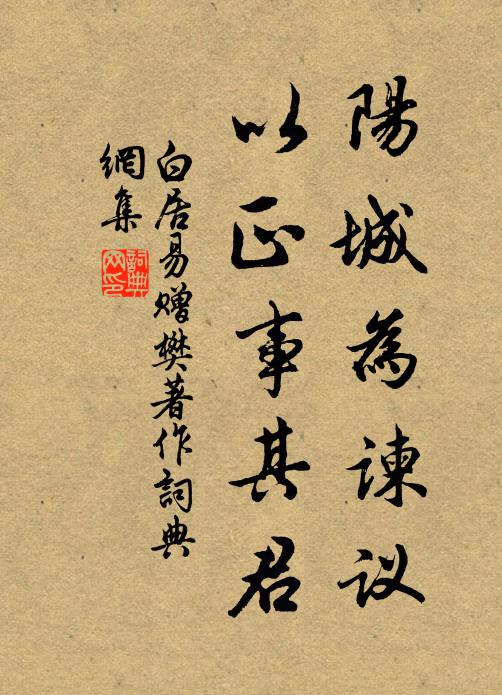 陽城為諫议
以正事其君
白居易赠樊著作詞典
網集
詞典
网印